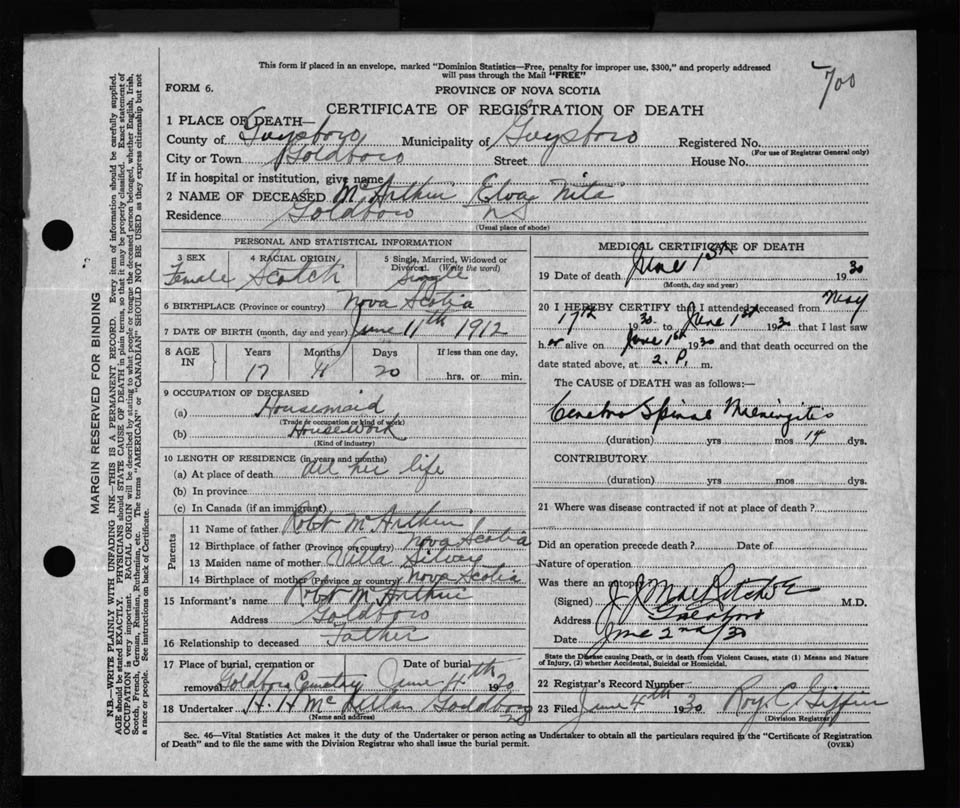 This form if placed in an envelope, marked "Dominion Statistics—Free, penalty for improper use, $300," and properly addressed
will pass through the Mail "FREE"
700
FORM 6.
PROVINCE OF NOVA SCOTIA
CERTIFICATE OF REGISTRATION OF DEATH
1 PLACE OF DEATH—
County of Guysboro Municipality of Guysboro Registered No.
(For use of Registrar General only)
City or Town Goldboro Street House No.
If in hospital or institution, give name
2 NAME OF DECEASED McArthur Elva Nita
Residence Goldboro NS
(Usual place of abode)
PERSONAL AND STATISTICAL INFORMATION
3 SEX 4 RACIAL ORIGIN 5 Single, Married, Widowed or Divorced. (Write the word)
Female Scotch Single
6 BIRTHPLACE (Province or country) Nova Scotia
7 DATE OF BIRTH (month, day and year) June 11th 1912
8 AGE IN Years Months Days If less than one day,
17 11 20 hrs. or min.
9 OCCUPATION OF DECEASED
(a) Housemaid
(Trade or occupation or kind of work)
(b) Housework
(Kind of industry)
10 LENGTH OF RESIDENCE (in years and months)
(a) At place of death all her life
(b) In province
(c) In Canada (if an immigrant)
Parents
11 Name of father Robt McArthur
12 Birthplace of father (Province or country) Nova Scotia
13 Maiden name of mother
14 Birthplace of mother (Province or country) Nova Scotia
15 Informant's name Robt McArthur
Address Goldboro
16 Relationship to deceased Father
17 Place of burial, cremation or removal Goldboro Cemetry Date of burial June 4th 1930
18 Undertaker H. H McLellan Goldboro NS
(Name and address)
MEDICAL CERTIFICATE OF DEATH
19 Date of death June 1st 1930
(Month, day and year)
20 I HEREBY CERTIFY that I attended deceased from May
17th 1930 to June 1st 1930 that I last saw
h er alive on June 1st 1930 and that death occurred on the
date stated above, at 2. P. m.
The CAUSE OF DEATH was as follows:—
Cerebro Spinal Meningitis
(duration) yrs mos 14 dys.
CONTRIBUTORY
(duration) yrs. mos. dys.
21 Where was disease contracted if not at place of death?
Did an operation precede death? Date of
Nature of operation
Was there an autopsy
(Signed) M.D.
Address Goldboro
Date June 2nd/30
State the Disease causing Death, or in death from Violent Causes, state (1) Means and Nature
of Injury, (2) whether Accidental, Suicidal or Homicidal.
22 Registrar's Record Number
23 Filed June 4th 1930 Roy C Giffin
(Division Registrar)
Sec. 46—Vital Statistics Act makes it the duty of the Undertaker or person acting as Undertaker to obtain all the particulars required in the "Certificate of Registration
of Death" and to file the same with the Division Registrar who shall issue the burial permit.
(OVER)
MARGIN RESERVED FOR BINDING
N.B.—WRITE PLAINLY WITH UNFADING INK—THIS IS A PERMANENT RECORD. Every item of information should be carefully supplied.
AGE should be stated EXACTLY. PHYSICIANS should STATE CAUSE OF DEATH in plain terms, so that it may be properly classified. Exact statement of
OCCUPATION is very important. RACIAL ORIGIN will be described by stating to what people or tongue the deceased person belonged, whether English, Irish,
Scotch, French, German, Russian, Ruthenian, etc. The terms "AMERICAN" or "CANADIAN" SHOULD NOT BE USED as they express citizenship but not
a race or people. See instructions on back of Certificate.